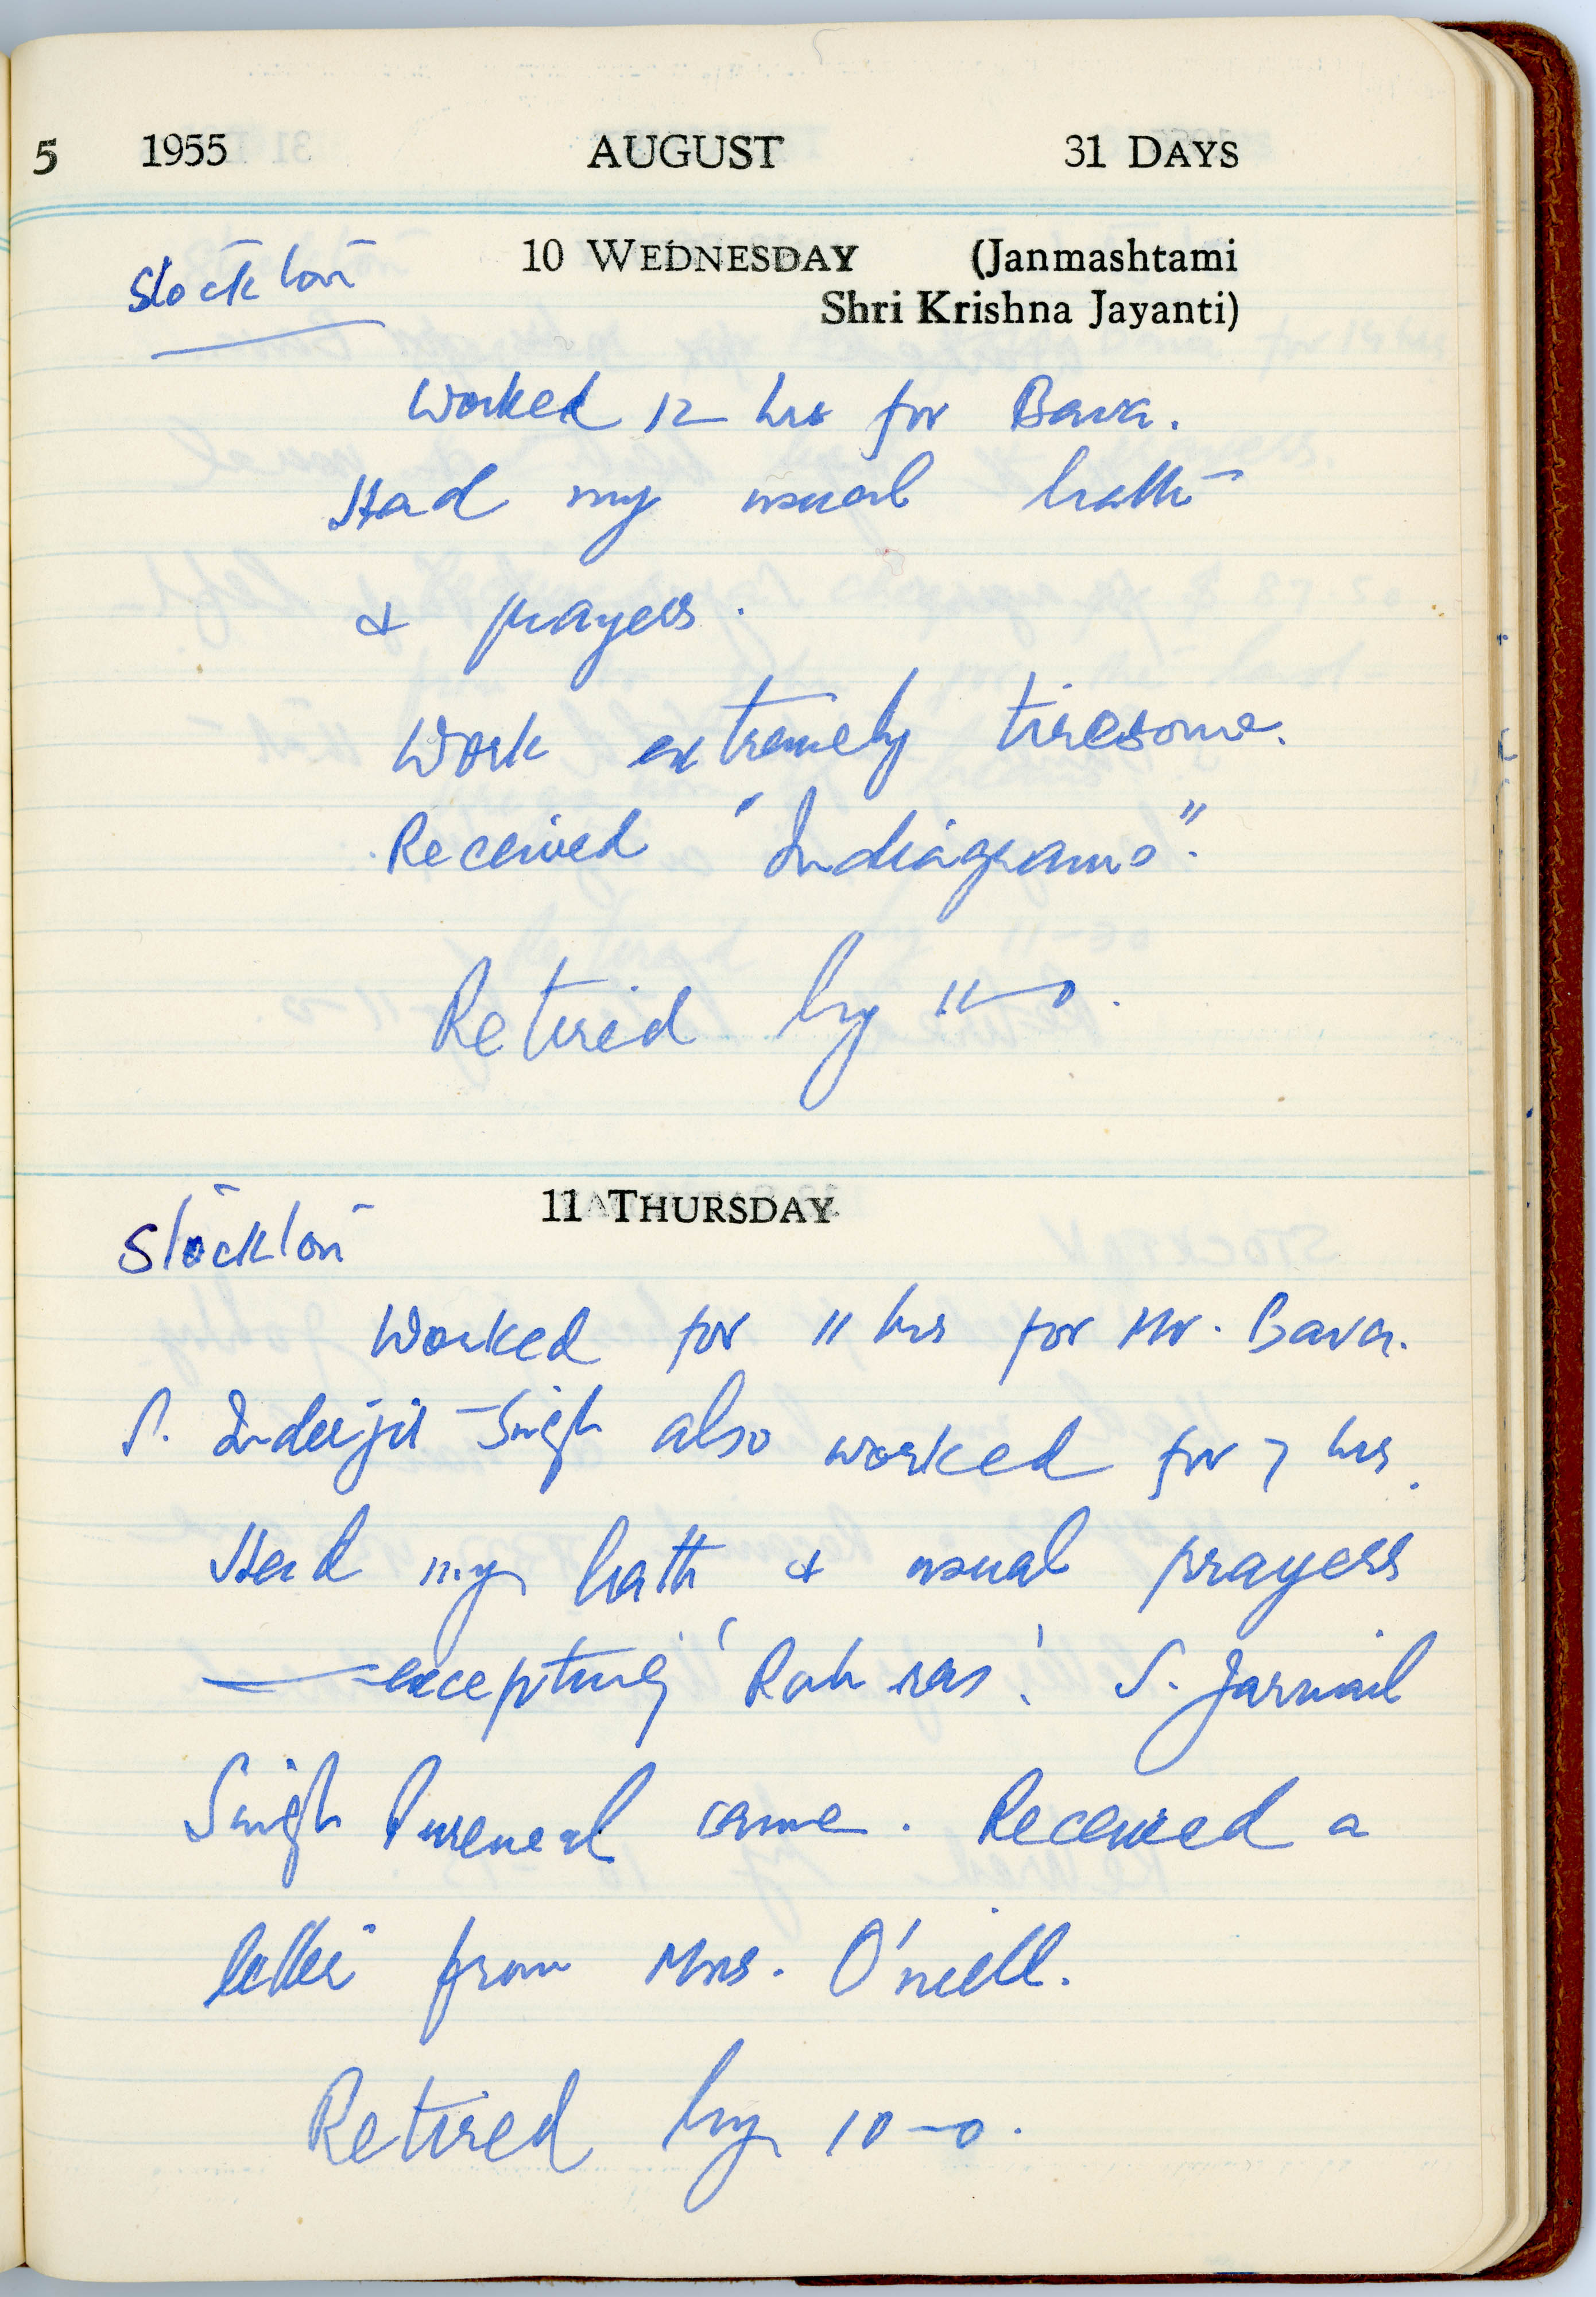 5 1955 AUGUST 31 DAYS
Stockton 10 WEDNESDAY (Janmashtami
Shri Krishna Jayanti)
Worked 12 hrs for Bava.
Had my usual bath
& prayers.
Work extremely tiresome.
Received "Indiagrams".
Retired by 11-0.
11 THURSDAY
Stockton
Worked for 11 hrs for Mr. Bava.
S. Inderjit Singh also worked for 7 hrs.
Had my bath & usual prayers
— excepting 'Rah ras'. S. Jarnail
Singh came. Received a
letter from Mrs. O'neill.
Retired by 10-0.